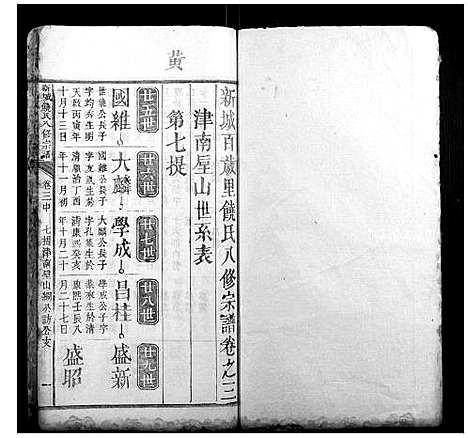 黄
新城百歲里饒氏八修宗譜卷之三
津南屋山世系表
第七提
廿五世
廿六世
廿七世
廿八世
廿九世
國維
大麟
學成
昌桂
盛新
盛昭
世龍公長子
字均秀生明
天啟丙寅年
十月十三日
國維公長子
清順治丁酉
年十一月初
大麟公長子
字孔集生於
清康熙癸亥
年十月二十
學成公長子
康熙壬辰八
月二十七日
新城饒氏八修宗譜
卷三中
七提津南屋山
一